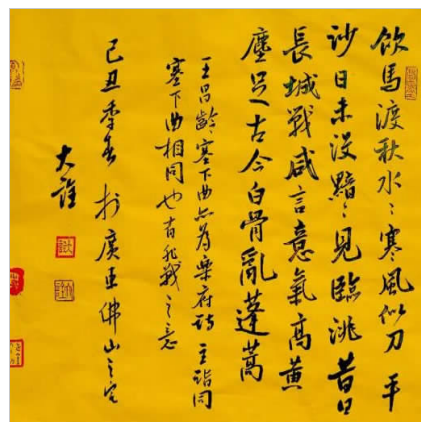 飲馬渡秋水〻寒風似刀平
沙日未没黯〻見臨洮昔日
長城戰咸言意氣高黄
塵足古今白骨亂蓬蒿
王昌齡塞下曲亦為樂府詩主詣同
塞下曲相同也有非戰之意
己丑季春於廣东佛山之宅
大